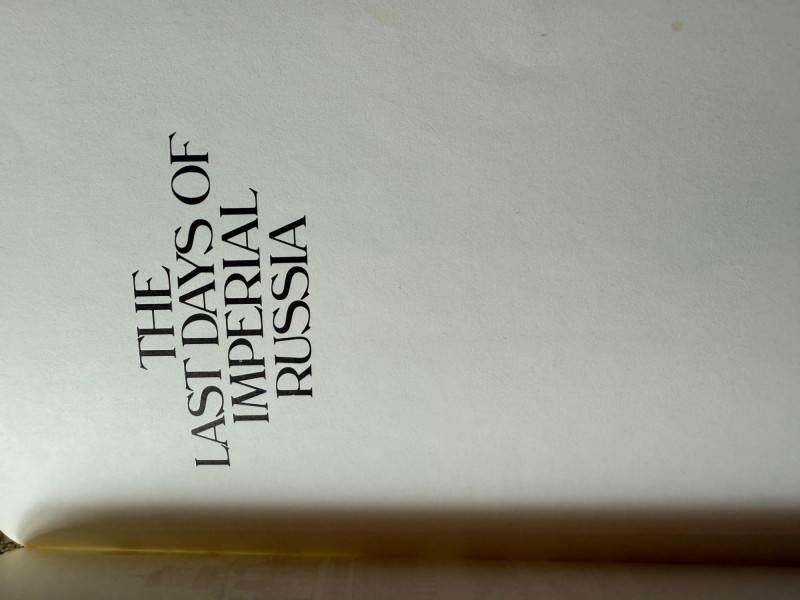 THE
LAST DAYS OF
IMPERIAL
RUSSIA